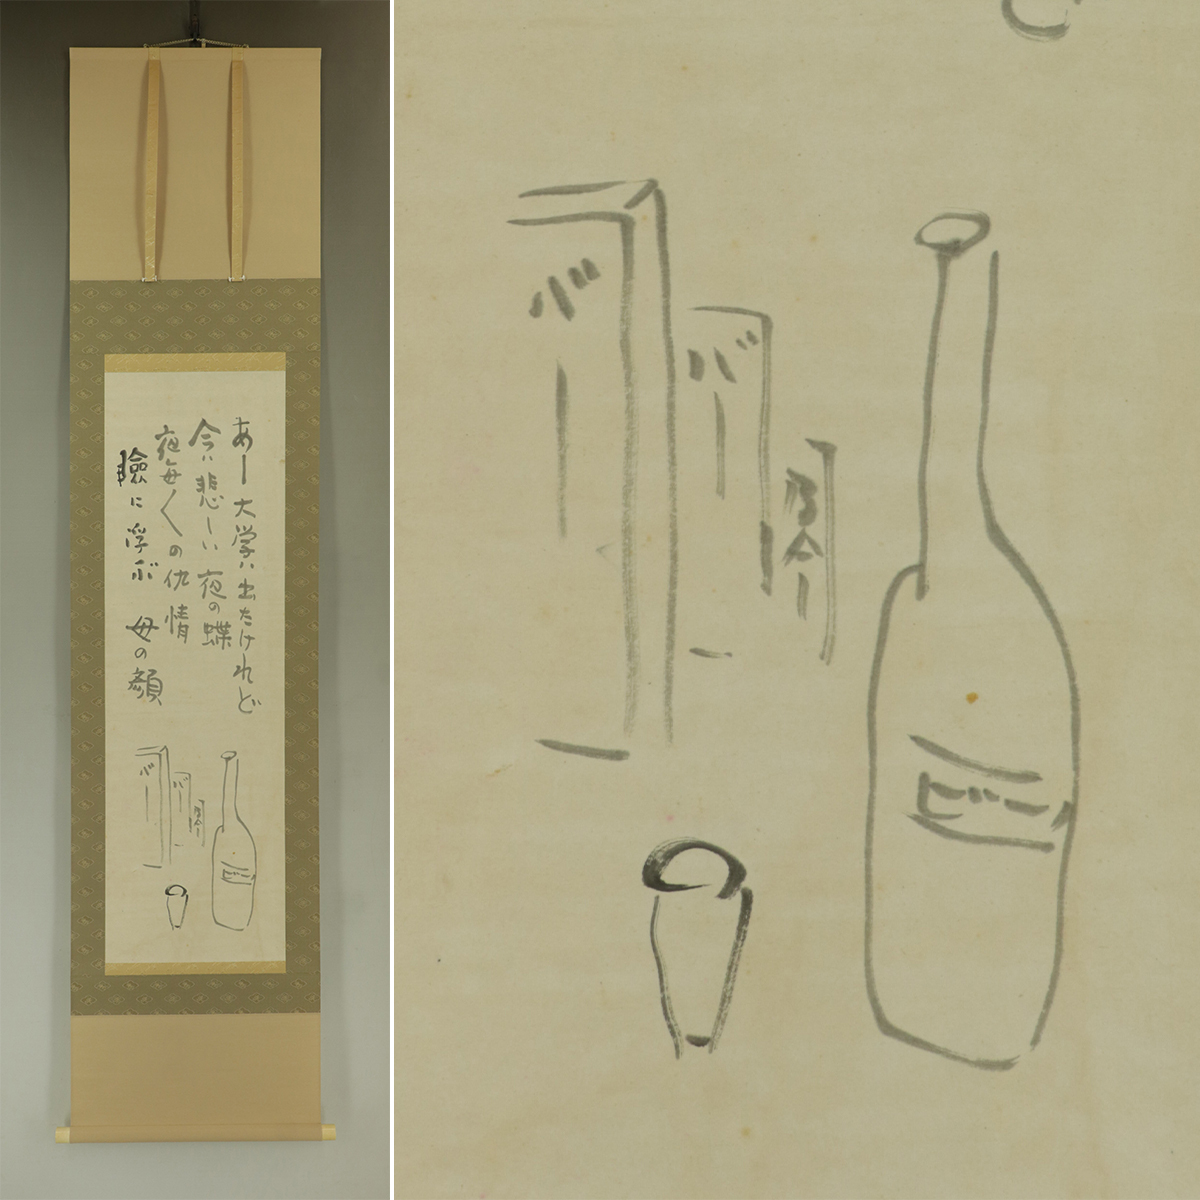 あー大学は出たけれど
今は悲しい夜の蝶
夜毎〱の仇情
瞼に浮ぶ母の顔
バー
バー
バー
ビール